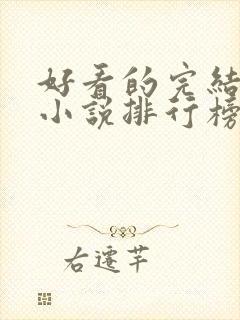 好看的完結
小說排行榜
右遷芊